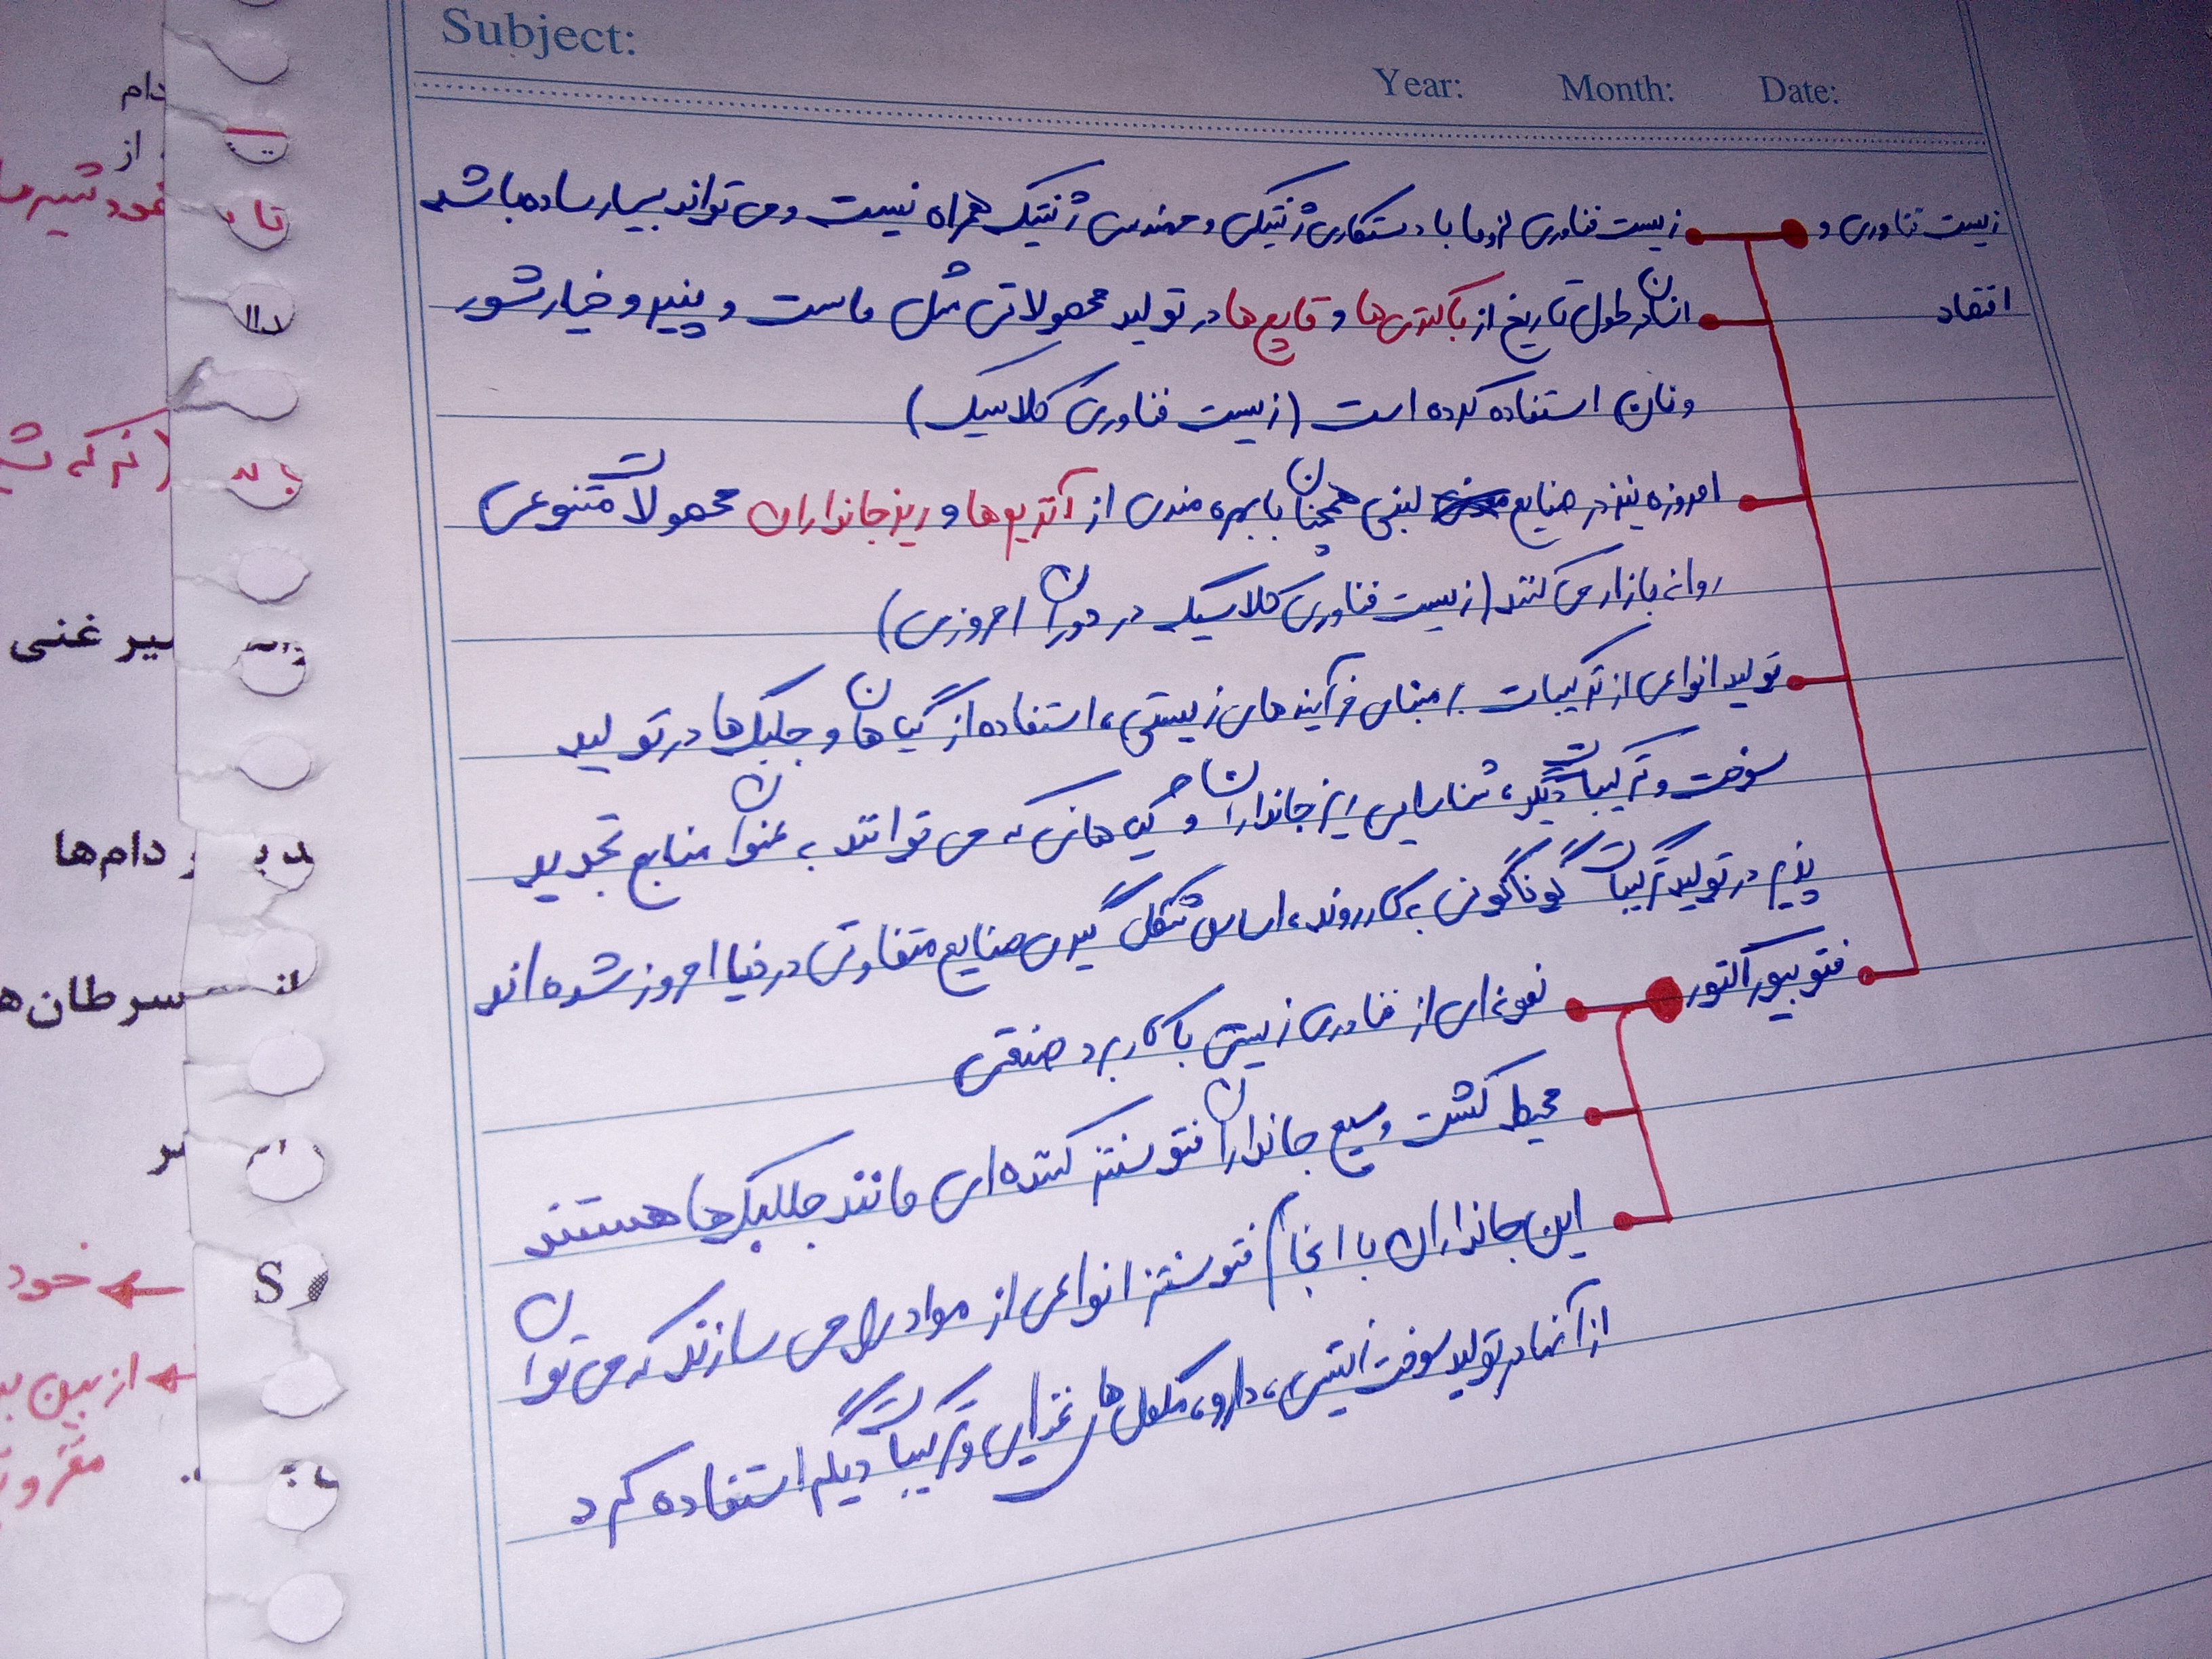 Subject:
Year: Month: Date:
زیست فناوری و زیست فناوری لزوما با دستکاری ژنتیکی و مهندسی ژنتیک همراه نیست و می تواند بسیار ساده باشد
اقتصاد انسان در طول تاریخ از باکتری ها و قارچ ها در تولید محصولاتی مثل ماست و پنیر و خیارشور
و نان استفاده کرده است (زیست فناوری کلاسیک)
امروزه نیز در صنایع لبنی همچنان با بهره مندی از آنزیم ها و ریزجانداران محصولات متنوعی
روانه بازار می کنند (زیست فناوری کلاسیک در دوران امروزی)
تولید انواعی از ترکیبات بر مبنای فرآیندهای زیستی، استفاده از گیاهان و جلبک ها در تولید
سوخت و ترکیبات دیگر، شناسایی ریزجانداران و گیاهانی که می توانند به عنوان منابع تجدید
پذیر در تولید ترکیبات گوناگونی به کار روند، اساس شکل گیری صنایع متفاوتی در دنیا امروز شده اند
فتوبیوراکتور نمونه ای از فناوری زیستی با کاربرد صنعتی
محیط کشت وسیع جانداران فتوسنتز کننده ای مانند جلبک ها هستند
این جانداران با انجام فتوسنتز انواعی از مواد را می سازند که می توان
از آنها در تولید سوخت زیستی، دارو، مکمل های غذایی و ترکیبات دیگر استفاده کرد
دام
از
یر غنی
دام‌ها
سرطان‌ه
خود
از بین بر